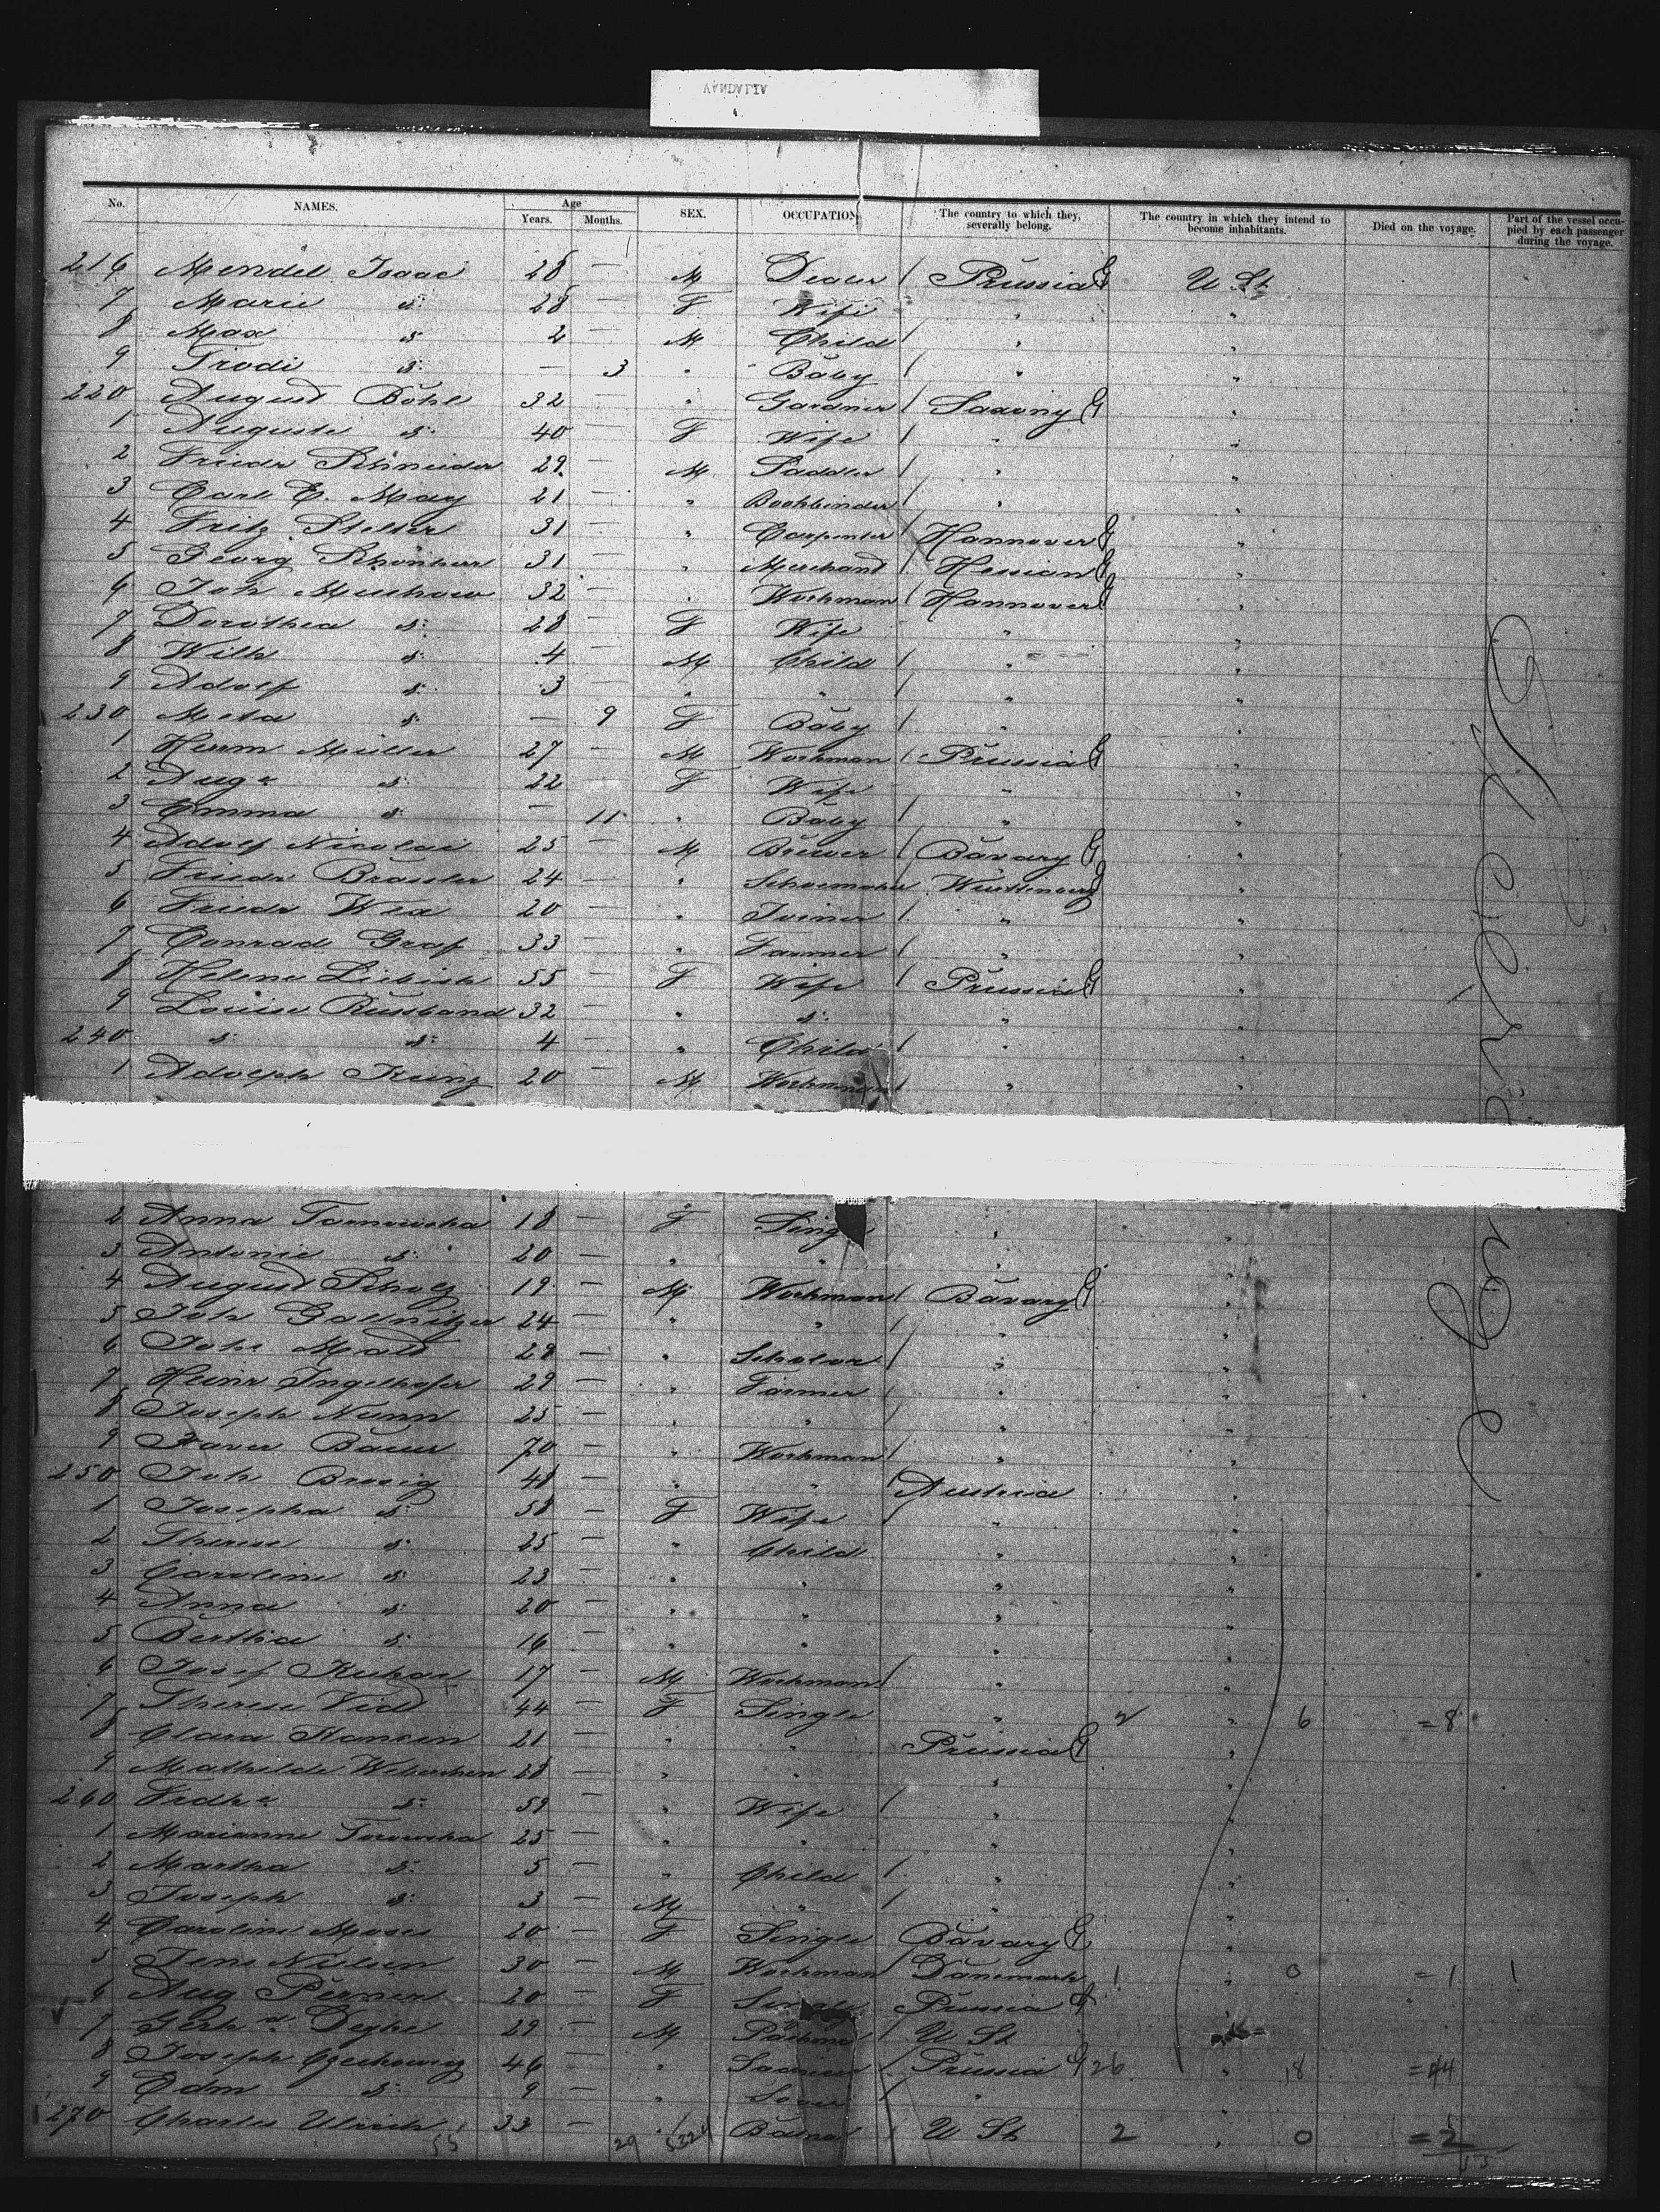 VANDALIA
No. NAMES. Age Years. Months. SEX. OCCUPATION The country to which they, severally belong. The country in which they intend to become inhabitants. Died on the voyage. Part of the vessel occupied by each passenger during the voyage.
216 Mendel Isaac 28 — M Dealer / Prussia G U St
7 Marie d: 28 — F Wife " "
8 Max d 2 — M Child / " "
9 d: — 3 " Baby / " "
220 August Böhl 32 — " Gardner / Saxony G "
1 Auguste d: 40 — F Wife / " "
2 Friedr Schneider 29 — M Saddler / " "
3 Carl E. May 21 — " Bookbinder / " "
4 Fritz Stelter 31 — " Carpenter / Hannover G "
5 Georg Schönherr 31 — " Merchant / Hessian G "
6 Joh 32 — " Workman / Hannover G "
7 Dorothea d: 28 — F Wife " "
8 Wilh d: 4 — M Child / " "
9 Adolf d: 3 — " " / " "
230 Meta d: — 9 F Baby / " "
1 Herrm Müller 27 — M Workman / Prussia G "
2 Auge d: 22 — F Wife " "
3 Emma d: — 11 " Baby / " "
4 Adolf Nicolai 25 — M Brewer / Bavary G "
5 Friedr 24 — " Schoemaker Württemberg G "
6 Friedr Wex 20 — " Joiner / " "
7 Conrad Graf 33 — " Farmer / " "
8 Helene Liebich 55 — F Wife / Prussia G "
9 Louise Russband 32 — " d: " "
240 d d: 4 — " Child / " "
1 Adolph 20 — M Workman / " "
2 Anna 18 — F Single " "
3 Antonie d: 20 — " " " "
4 August Scholz 19 — M Workman / Bavary G "
5 Joh Gollnitzer 24 — " " / " "
6 28 — " Scholar / " "
7 Heinr Ingelhofer 29 — " Farmer / " "
8 Joseph Nunn 25 — " " / " "
9 Xaver Bauer 70 — " Workman / " "
250 Joh Brosig 48 — " " / Austria "
1 Josepha d: 58 — F Wife / " "
2 Therese d: 25 — " Child " "
3 Caroline d: 23 — " " " "
4 Anna d: 20 — " " " "
5 Bertha d: 16 — " " " "
6 Josef 17 — M Workman / " "
7 Therese 44 — F Single " 2 " 6 =8
8 Clara 21 — " " Prussia G "
9 Mathilde 28 — " " " "
260 d: 59 — " Wife / " "
1 Marianne 25 — " " " "
2 Martha d: 5 — " Child / " "
3 Joseph d: 3 — M " / " "
4 Caroline Moses 20 — F Single Bavary G "
5 Jens Nielsen 30 — M Workman Danemark 1 " 0 =1 1
6 Aug 20 — F Single Prussia G "
7 29 — M / U St "
8 Joseph 46 — " / Prussia G 26 " 18 =44
9 Edm d: 9 — " / " "
270 Charles Ulrich 33 — " / U St 2 " 0 =2
55 29 55